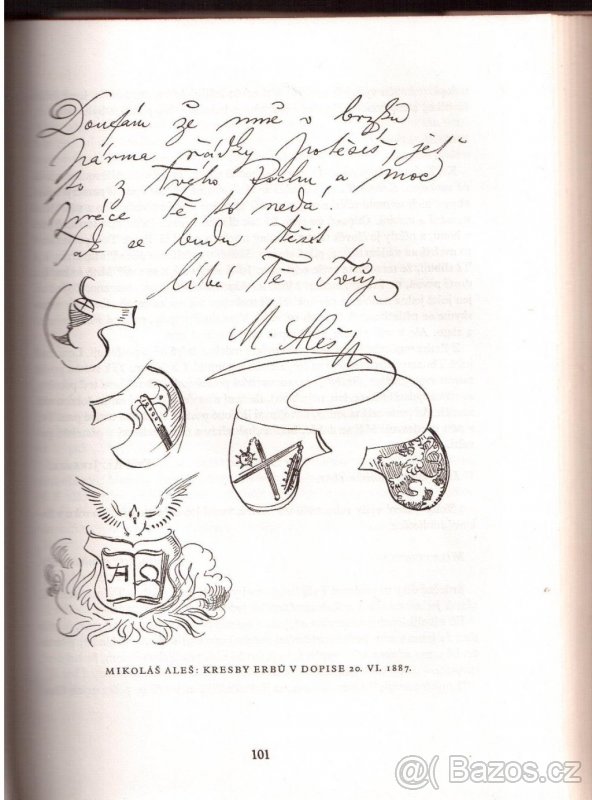 Doufám že mně v brzku
párma řádky potěšíš, jest
to z tvého fochu a moc
práce Tě to nedá.
Tak se budu těšit
líbá tě Tvůj
M. Aleš
A Ω
MIKOLÁŠ ALEŠ: KRESBY ERBŮ V DOPISE 20. VI. 1887.
101
@( Bazos.cz